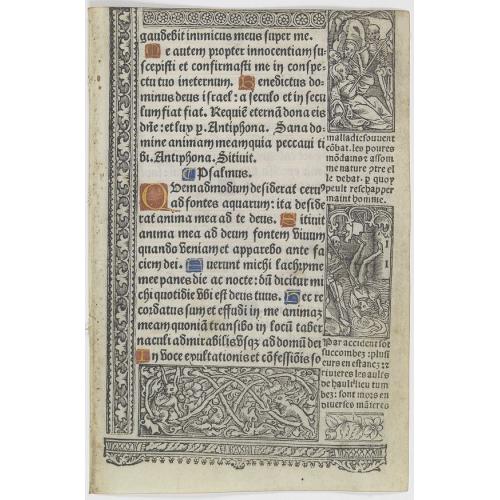 gaudebit inimicus meus super me.
Me autem propter innocentiam su
scepisti et confirmasti me in conspe-
ctu tuo ineternum. Benedictus do-
minus deus israel: a seculo et in secu
lum fiat fiat. Requiē eternā dona eis
dn̄e: et lux p. Antiphona. Sana do-
mine animam meam quia peccaui ti
bi. Antiphona. Sitiuit.
Psalmus.
Quemadmodum desiderat ceruꝰ
ad fontes aquarum: ita deside
rat anima mea ad te deus. Sitiuit
anima mea ad deum fontem viuum
quando veniam et apparebo ante fa
ciem dei. Fuerunt michi lachryme
mee panes die ac nocte: dū dicitur mi
chi quotidie vbi est deus tuus. Hec re
cordatus sum et effudi in me animaꝫ
meam quoniā transibo in locū taber
naculi admirabilis vsqꝫ ad domū dei
In voce exultationis et cōfessiōis so
malladie souuent
cōbat. les poures
mōdains: assom
me nature ꝯtre el
le debat. p quoy
peult reschapper
maint homme.
Par accident sōt
succombez: plusi
eurs en estancz
riuieres les aulꝭ
de hault lieu tum
bez: sont mors en
diuerses māieres